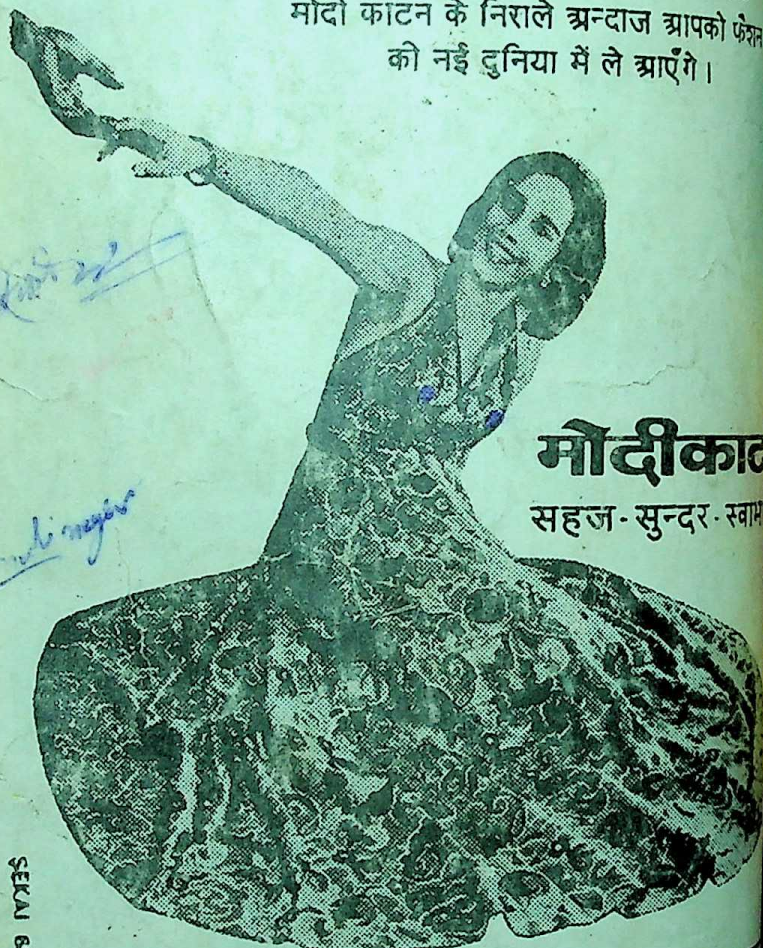 मोदी काटन के निराले अन्दाज आपको फैशन
की नई दुनिया में ले आएँगे।
मोदीकाट
सहज-सुन्दर-स्वाभ
SEKAI 6